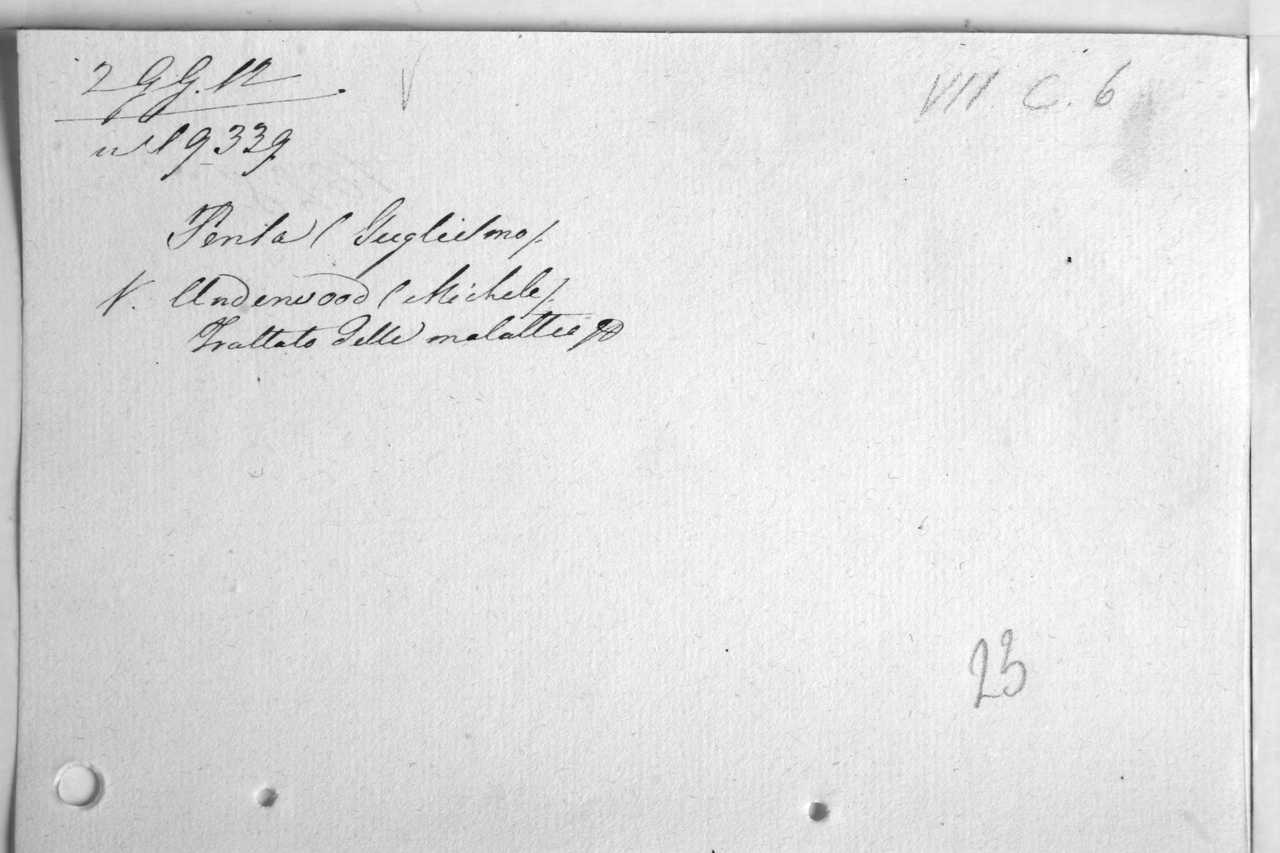 2 GG. 12
VII C. 6
n° 19339
Penta (Guglielmo).
V. Underwood (Michele).
Trattato delle malattie
23